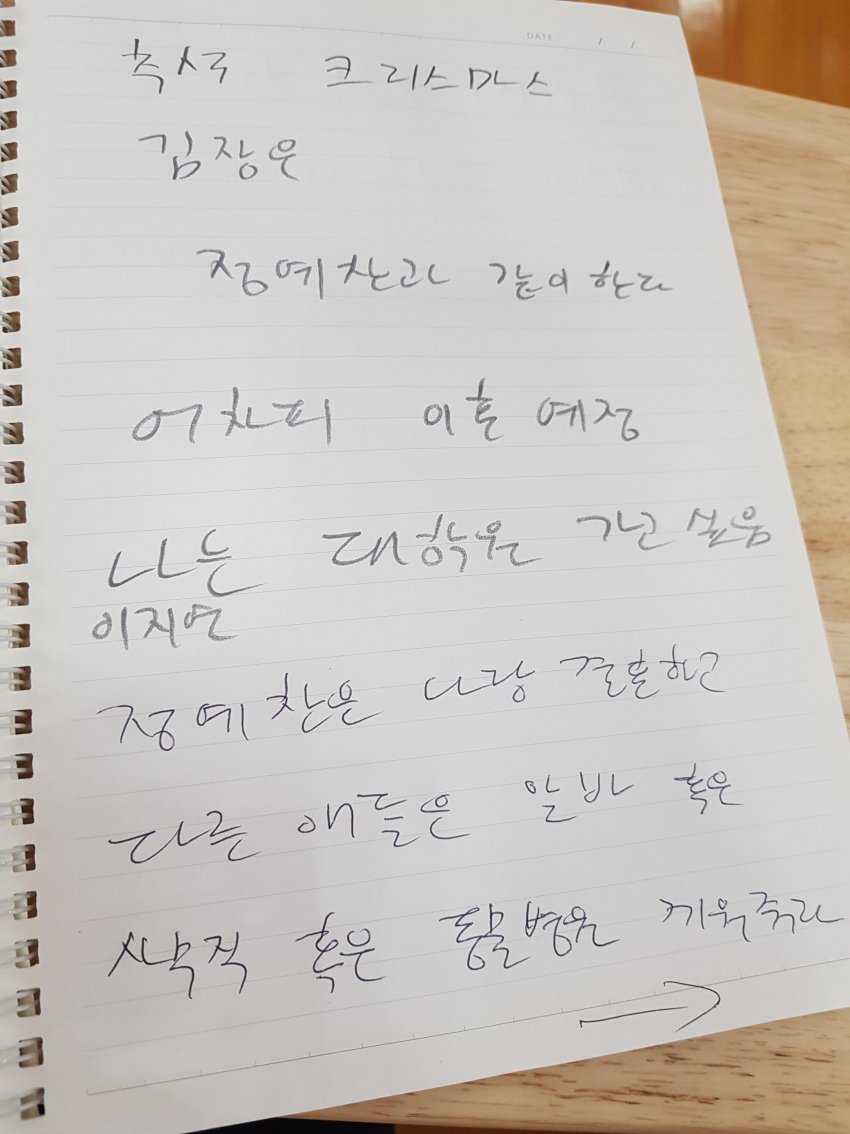 DATE: / /
축사 크리스마스
김장은
정예찬과 같이 한다
어차피 이혼 예정
나는 대학원 가고 싶음
이지연
정예찬은 나랑 결혼하고
다른 애들은 알바 혹은
사무직 혹은 동물병원 끼워주라
→